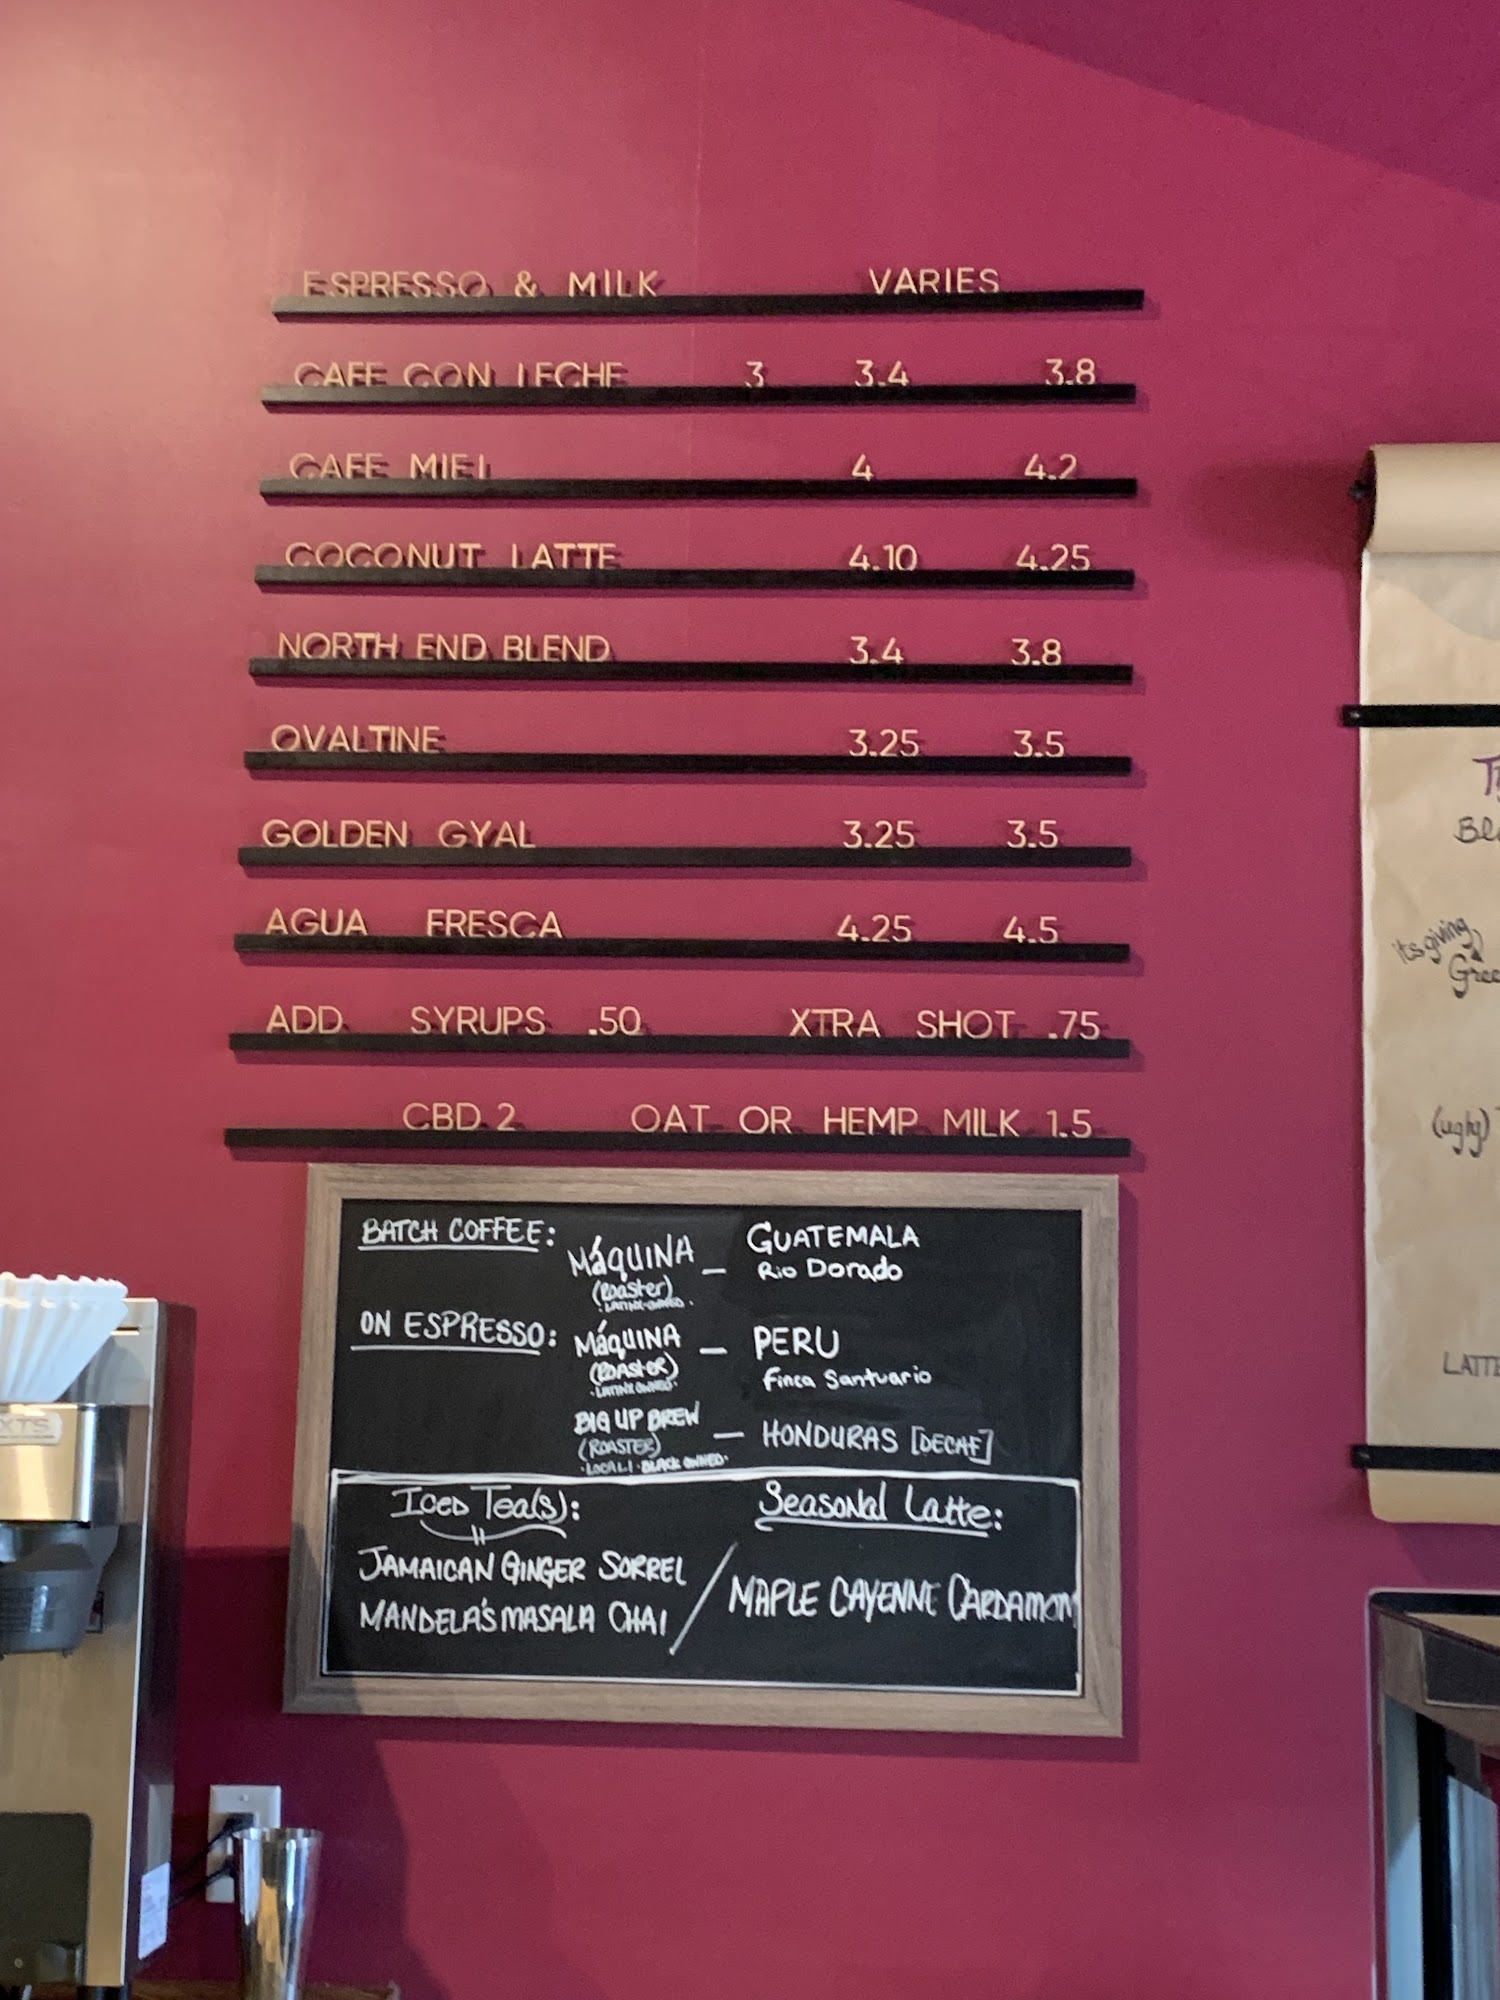 ESPRESSO & MILK VARIES
CAFE CON LECHE 3 3.4 3.8
CAFE MIEL 4 4.2
COCONUT LATTE 4.10 4.25
NORTH END BLEND 3.4 3.8
OVALTINE 3.25 3.5
GOLDEN GYAL 3.25 3.5
AGUA FRESCA 4.25 4.5
ADD SYRUPS .50 XTRA SHOT .75
CBD 2 OAT OR HEMP MILK 1.5
BATCH COFFEE: MáQUINA — GUATEMALA
(Roaster) Rio Dorado
· LATINX-OWNED ·
ON ESPRESSO: MáQUINA — PERU
(ROASTER) Finca Santuario
· LATINX OWNED ·
BIG UP BREW — HONDURAS [DECAF]
(ROASTER)
· LOCAL · BLACK OWNED ·
ICED TEA(S): Seasonal Latte:
JAMAICAN GINGER SORREL / MAPLE CAYENNE CARDAMOM
MANDELA'S MASALA CHAI
its giving
(ugly)
LATTE
XTS